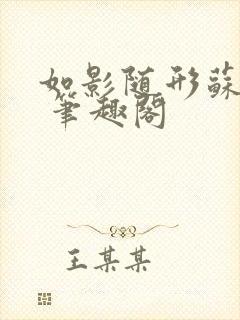 如影随形蘇
筆趣閣
王某某